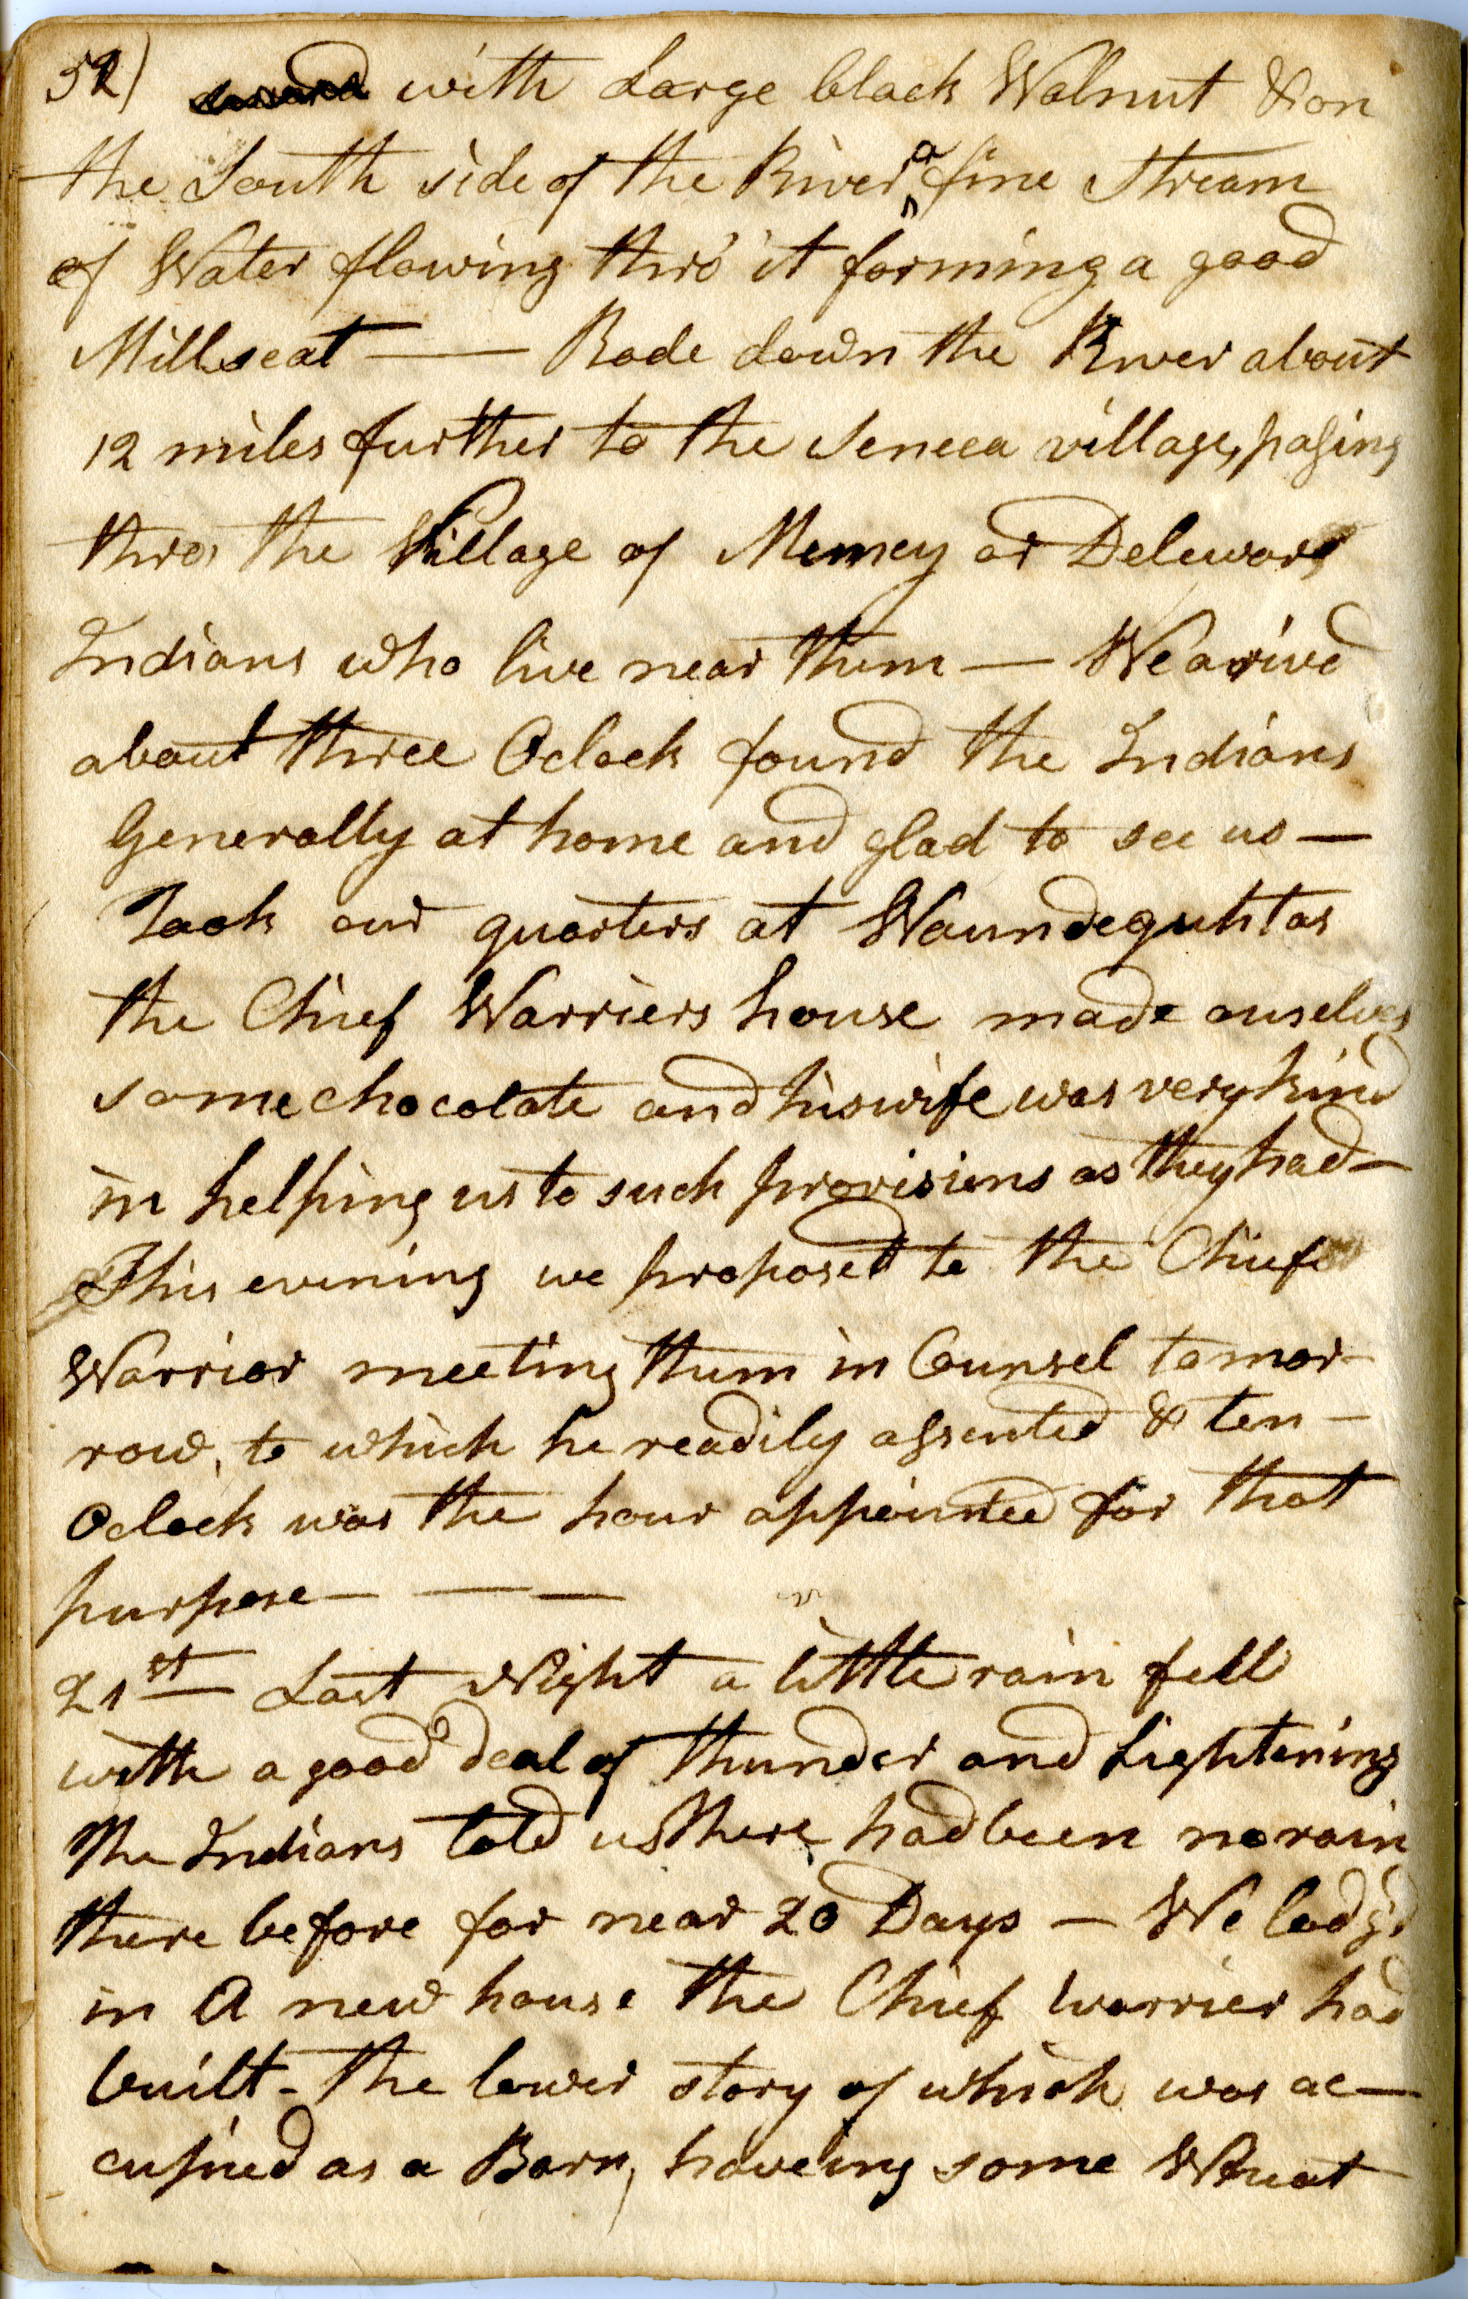 52) with Large black Walnut & on
the South side of the River a fine Stream
of Water flowing thro' it forming a good
Millseat — Rode down the River about
12 miles further to the Seneca village, passing
thro, the Village of Mumcy or Delewars
Indians who live near them — We arived
about three Oclock found the Indians
Generally at home and glad to see us —
Took our quarters at Waundeguhtas
the Chief Warriers house made ouselves
some chocolate and his wife was very kind
in helping us to such provisions as they had —
This evening we proposed to the Chief
Warrior meeting them in Counsel tomor-
row, to which he readily assented & ten —
Oclock was the hour appointed for that
purpose — — —
21st Last Night a little rain fell
with a good deal of thunder and Lightening
The Indians told us there had been no rain
there before for near 20 Days — We lodg'd
in A new house the Chief warrier had
built - the lower story of which was oc—
cupied as a Barn, haveing some Wheat